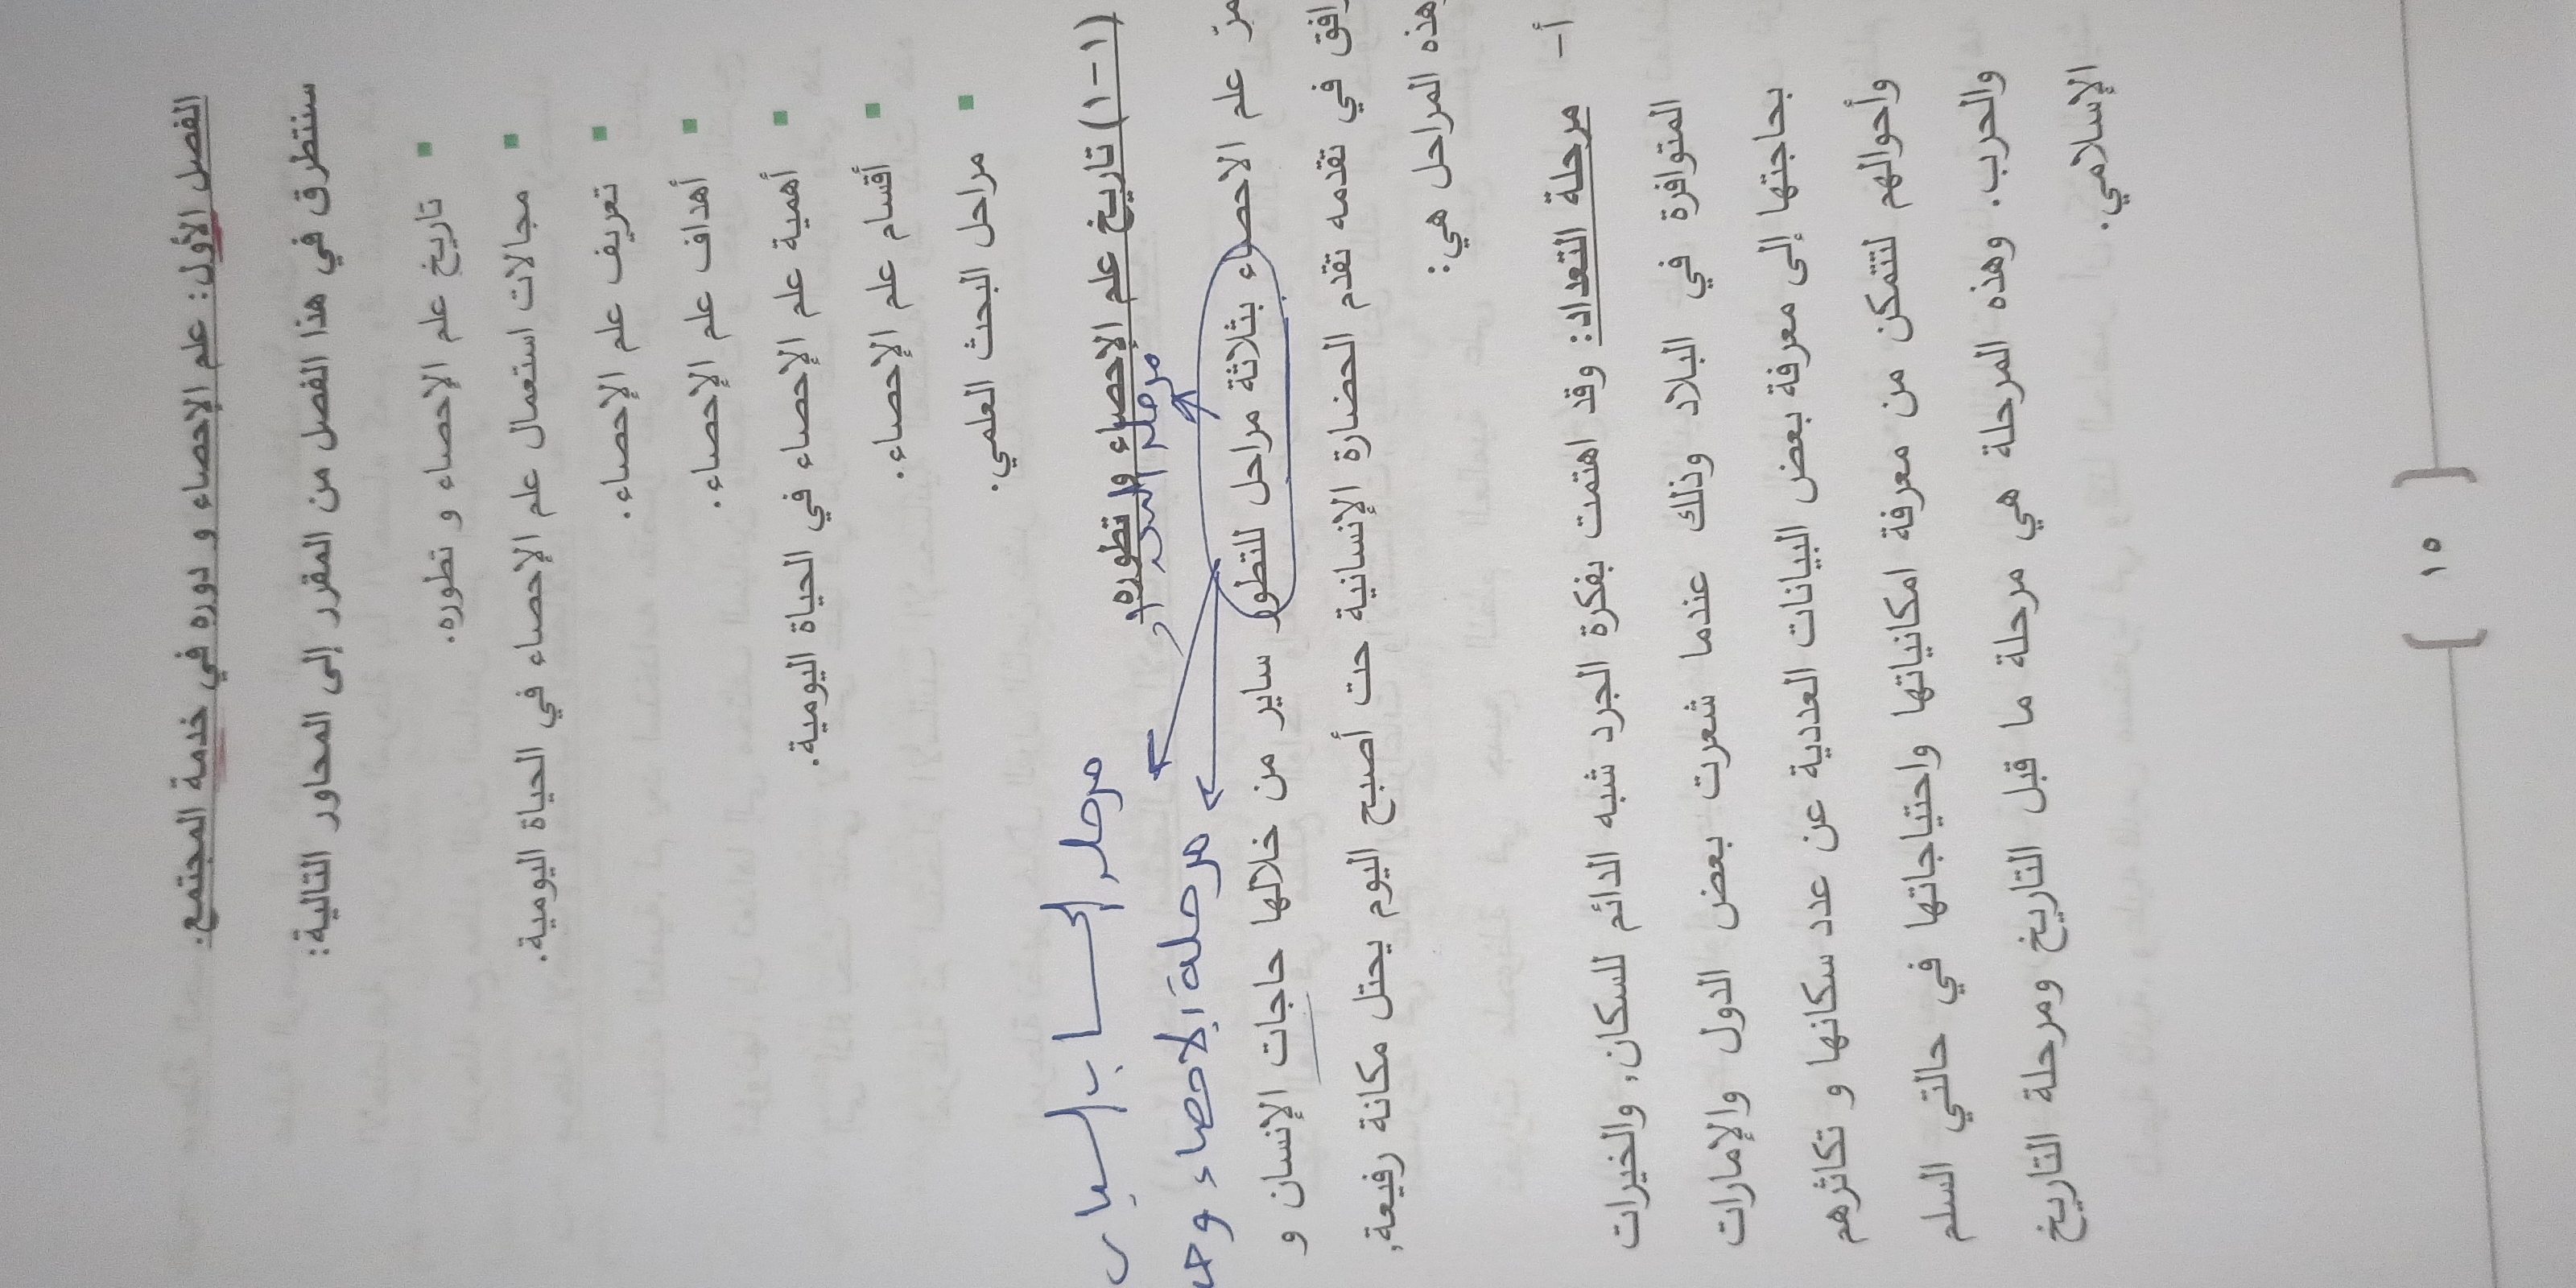 الفصل الأول: علم الإحصاء و دوره في خدمة المجتمع.
سنتطرق في هذا الفصل من المقرر إلى المحاور التالية:
▪ تاريخ علم الإحصاء و تطوره.
▪ مجالات استعمال علم الإحصاء في الحياة اليومية.
▪ تعريف علم الإحصاء.
▪ أهداف علم الإحصاء.
▪ أهمية علم الإحصاء في الحياة اليومية.
▪ أقسام علم الإحصاء.
▪ مراحل البحث العلمي.
(١-١) تاريخ علم الإحصاء و تطوره
مرحلة
مرحلة الحساب
مرحلة الاحصاء و
مرّ علم الاحصاء بثلاثة مراحل للتطور ساير من خلالها حاجات الإنسان و
رافق في تقدمه تقدم الحضارة الإنسانية حت أصبح اليوم يحتل مكانة رفيعة,
هذه المراحل هي:
أ- مرحلة التعداد: وقد اهتمت بفكرة الجرد شبه الدائم للسكان, والخيرات
المتوافرة في البلاد وذلك عندما شعرت بعض الدول والإمارات
بحاجتها إلى معرفة بعض البيانات العددية عن عدد سكانها و تكاثرهم
وأحوالهم لتتمكن من معرفة امكانياتها واحتياجاتها في حالتي السلم
والحرب. وهذه المرحلة هي مرحلة ما قبل التاريخ ومرحلة التاريخ
الإسلامي.
١٥